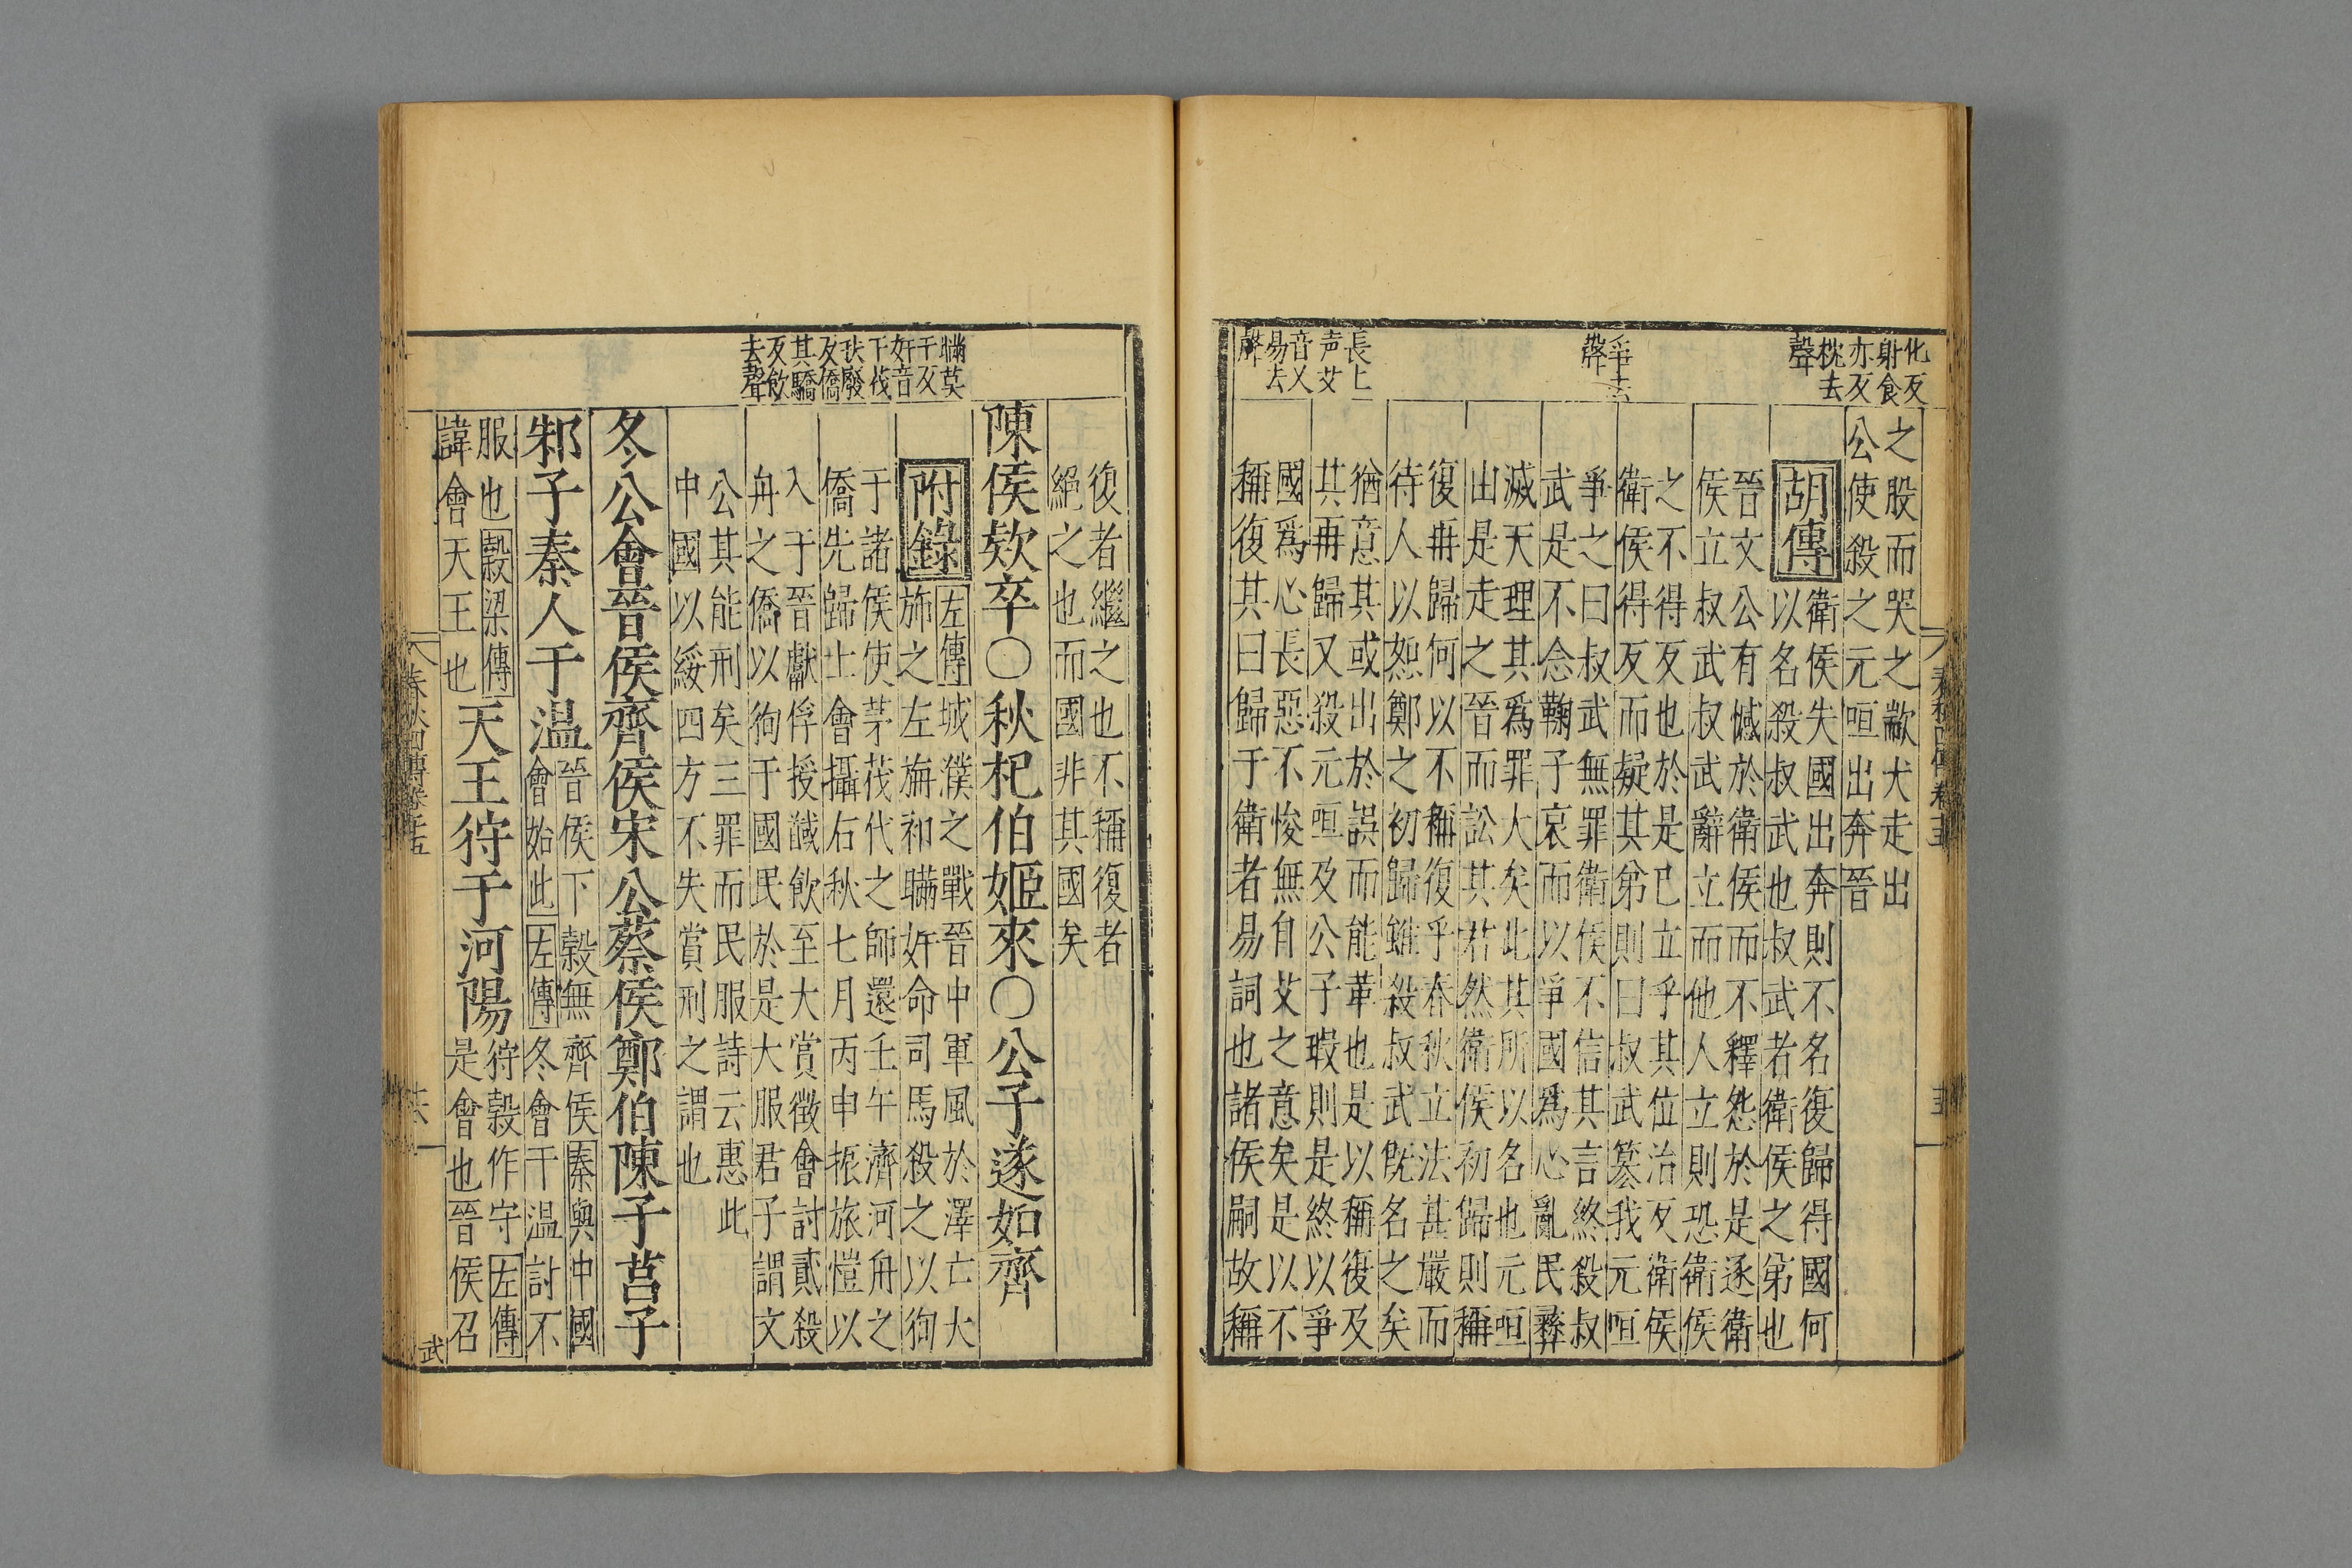 化反
射食
亦反
枕去
聲
爭去
聲
長上
声艾
音乂
易去
聲
之股而哭之歂犬走出
公使殺之元咺出奔晉
胡傳
衛侯失國出奔則不名復歸得國何
以名殺叔武也叔武者衛侯之弟也
晉文公有憾於衛侯而不釋怨於是逐衛
侯立叔武叔武辭立而他人立則恐衛侯
之不得反也於是已立乎其位治反衛侯
衛侯得反而疑其弟則曰叔武篡我元咺
爭之曰叔武無罪衛侯不信其言終殺叔
武是不念鞠子哀而以爭國爲心亂民彝
滅天理其爲罪大矣此其所以名也元咺
出是走之晉而訟其君然衛侯初歸則稱
復再歸何以不稱復乎春秋立法甚嚴而
待人以恕鄭之初歸雖殺叔武旣名之矣
猶意其或出於誤而能革也是以稱復及
其再歸又殺元咺及公子瑕則是終以爭
國爲心長惡不悛無自艾之意矣是以不
稱復其曰歸于衛者易詞也諸侯嗣故稱
瞞莫
干反
奸音
干茷
扶廢
反僑
其驕
反飲
去聲
復者繼之也不稱復者
絕之也而國非其國矣
陳侯欵卒〇秋杞伯姬來〇公子遂如齊
附錄
左傳城濮之戰晉中軍風於澤亡大
旆之左旃祁瞞奸命司馬殺之以徇
于諸侯使茅茷代之師還壬午濟河舟之
僑先歸士會攝右秋七月丙申振旅愷以
入于晉獻俘授馘飲至大賞徵會討貳殺
舟之僑以徇于國民於是大服君子謂文
公其能刑矣三罪而民服詩云惠此
中國以綏四方不失賞刑之謂也
冬公會晉侯齊侯宋公蔡侯鄭伯陳子莒子
邾子秦人于温
晉侯下穀無齊侯秦與中國
會始此左傳冬會于温討不
服也穀梁傳
諱會天王也
天王狩于河陽
狩穀作守左傳
是會也晉侯召
春秋四傳卷十五
武